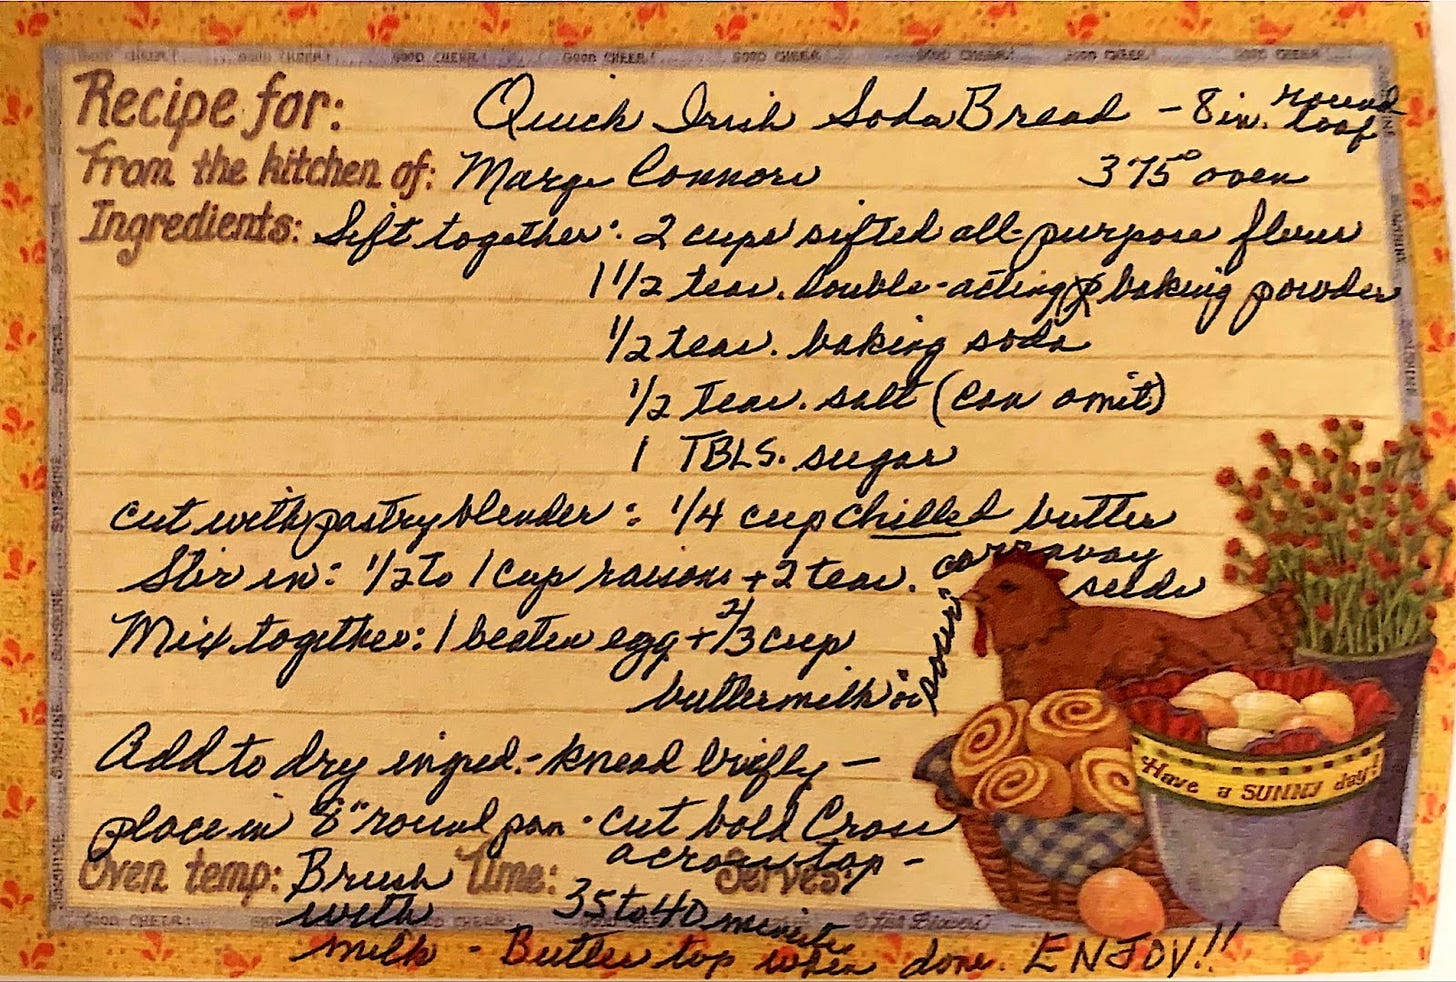 GOOD CHEER! GOOD CHEER! GOOD CHEER! GOOD CHEER! GOOD CHEER! GOOD CHEER!
Recipe for: Quick Irish Soda Bread - 8 in. round loaf
From the kitchen of: Marge Connors 375° oven
Ingredients: Sift together: 2 cups sifted all-purpose flour
1 1/2 teas. double-acting baking powder
1/2 teas. baking soda
1/2 teas. salt (can omit)
1 TBLS. sugar
cut with pastry blender: 1/4 cup chilled butter
Stir in: 1/2 to 1 cup raisins + 2 teas. carraway seeds
Mix together: 1 beaten egg + 2/3 cup
buttermilk or sour
Add to dry ingred. - knead briefly -
place in 8" round pan - cut bold Cross
across top -
Oven temp: Time: Serves:
Brush with milk - 35 to 40 minutes
Butter top when done. ENJOY!!
Have a SUNNY day!
SUNSHINE SUNSHINE SUNSHINE SUNSHINE
GOOD CHEER! GOOD CHEER!